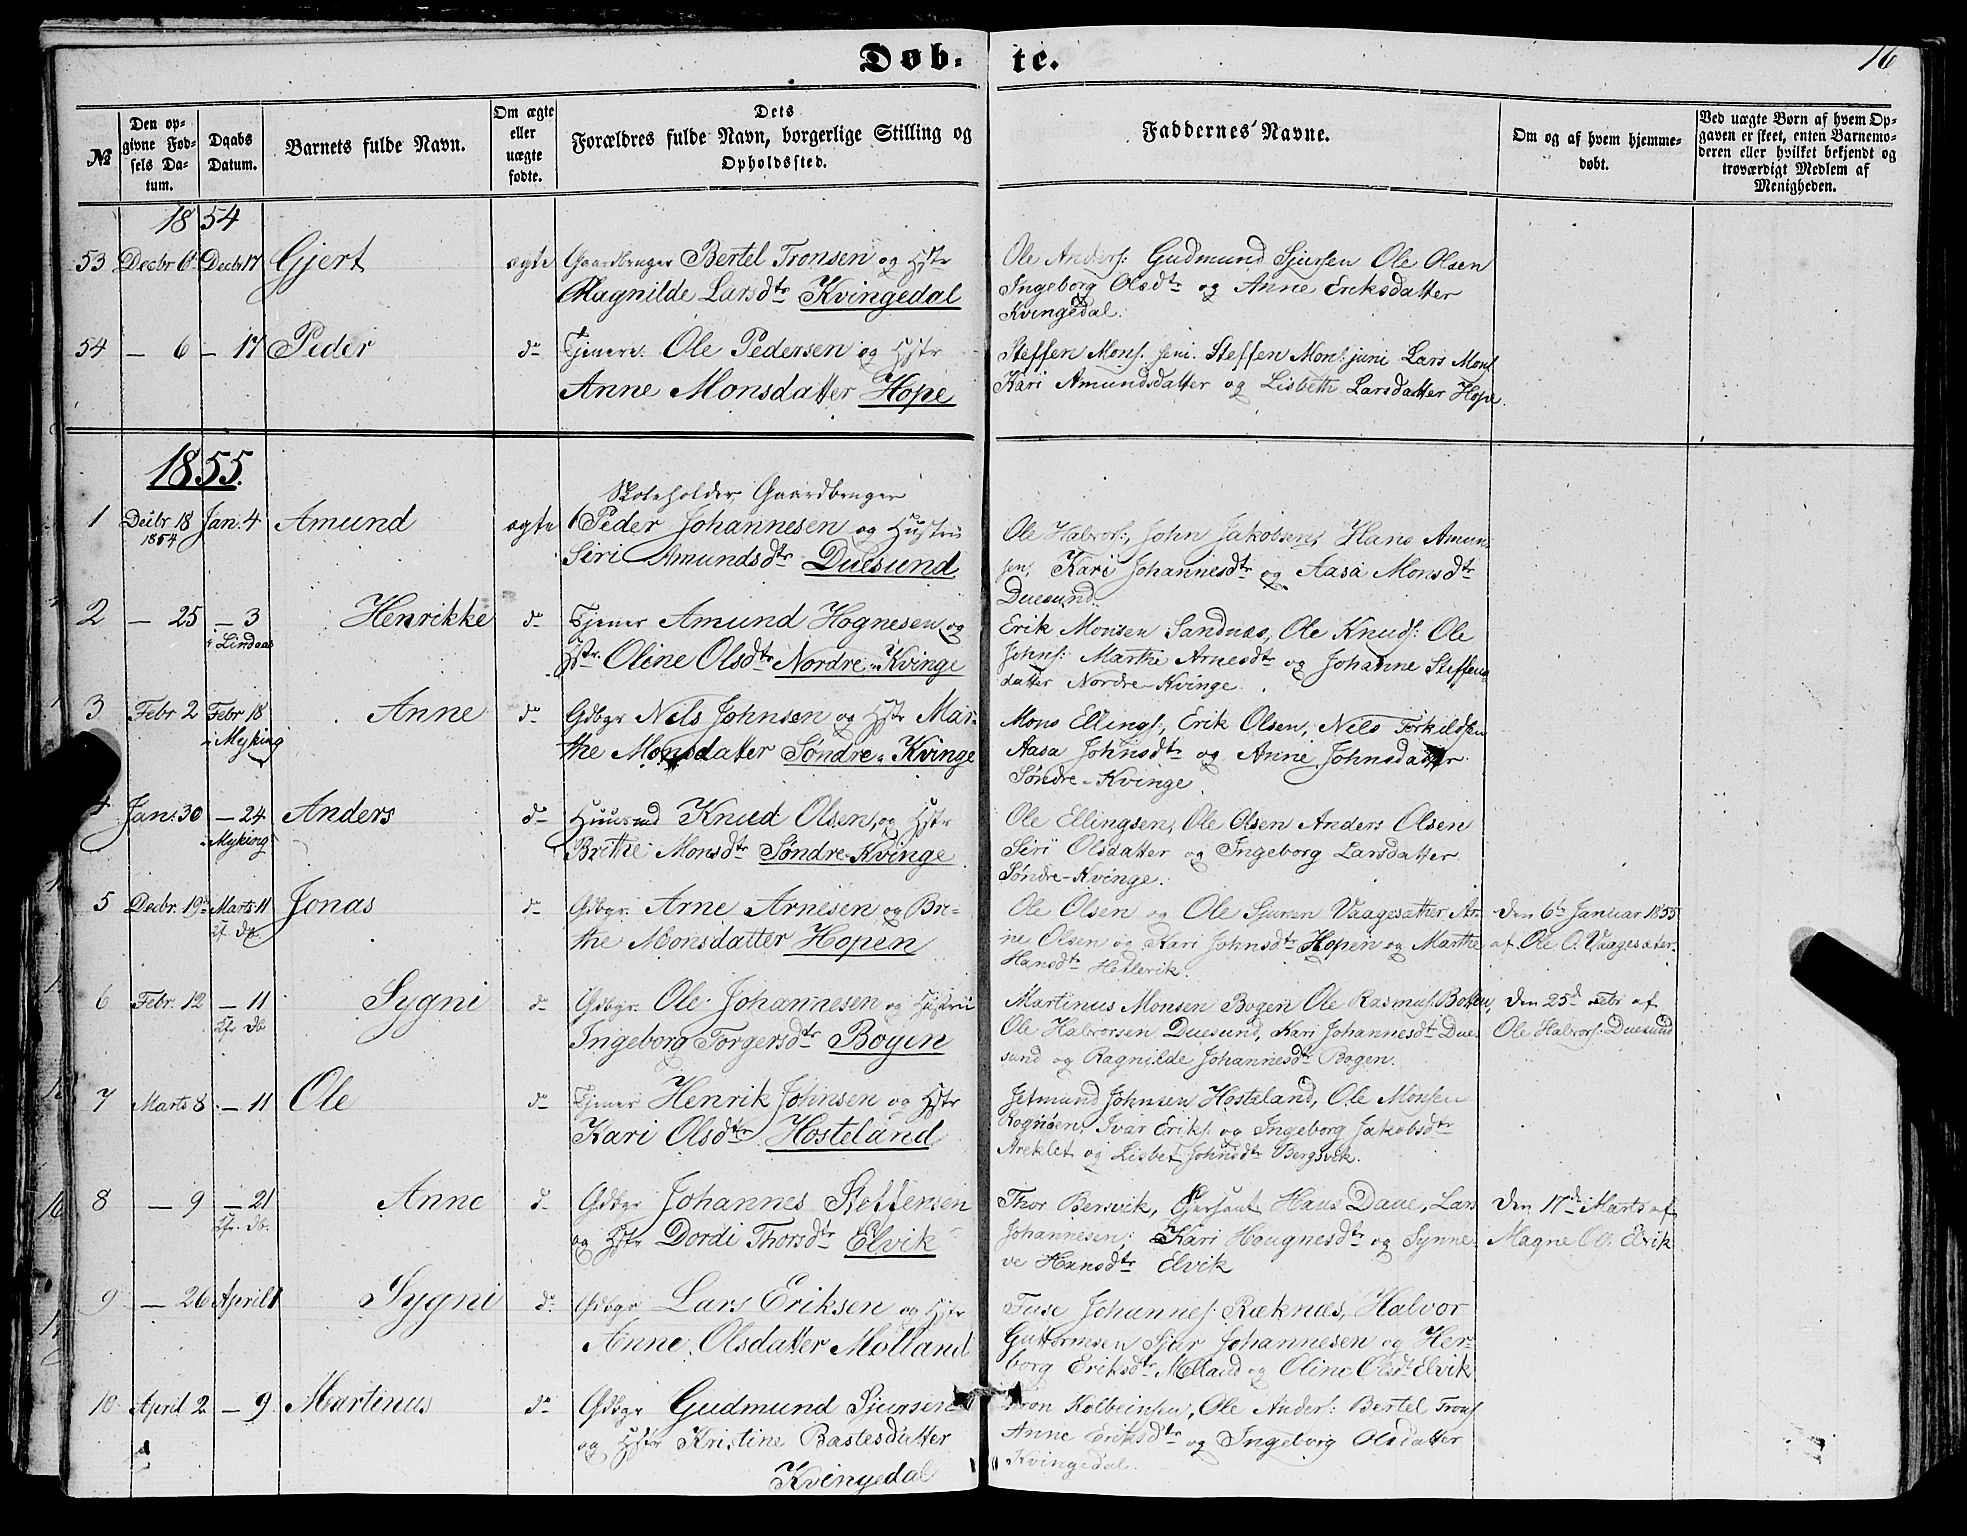 Døb- te.
16
№
Den opgivne Fødsels Datum.
Daabs Datum.
Barnets fulde Navn.
Om ægte eller uægte fødte.
Dets Forældres fulde Navn, borgerlige Stilling og Opholdssted.
Faddernes Navne.
Om og af hvem hjemmedøbt.
Ved uægte Børn af hvem Opgaven er skeet, enten Barnemoderen eller hvilket bekjendt og troværdigt Medlem af Menigheden.
1854
53 Decbr 6 Decbr 17 Gjert ægte Gaardbruger Bertel Tronsen og Hstr
Ragnilde Larsdtr Kvingedal
Ole Anders: Gudmund Sjursen Ole Olsen
Ingeborg Olsdtr og Anne Eriksdatter
Kvingedal.
54 — 6 — 17 Peder do Tjener. Ole Pedersen og Hstr
Anne Monsdatter Hope
Steffen Mons. seni. Steffen Mons. juni Lars Mons
Kari Amundsdatter og Lisbeth Larsdatter Hope.
1855.
Skoleholder, Gaardbruger
1 Decbr 18 1854 Jan: 4 Amund ægte Peder Johannesen og Hustru
Siri Amundsdtr Duesund
Ole Halvors:, John Jakobsen, Hans Amund
sen, Kari Johannesdtr og Aasa Monsdtr
Duesund.
2 — 25 — 3 i Lindaas Henrikke do Tjener Amund Hognesen og
Hstr. Oline Olsdtr Nordre-Kvinge
Erik Monsen Sandnæs, Ole Knuds: Ole
Johns: Marthe Arnesdtr og Johanne Steffens
datter Nordre-Kvinge.
3 Febr 2 Febr 18 i Myking Anne do Gdbgr Nils Johnsen og Hstr Mar-
the Monsdatter Søndre-Kvinge
Mons Ellings:, Erik Olsen, Nils Torkildsen
Aasa Johnsdtr og Anne Johnsdatter
Søndre-Kvinge.
4 Jan: 30 — 24 Myking Anders do Huusmd Knud Olsen, og Hstr
Brithe Monsdtr Søndre-Kvinge
Ole Ellingsen, Ole Olsen Anders Olsen
Siri Olsdatter og Ingeborg Larsdatter
Søndre-Kvinge.
5 Decbr. 19 Marts 11 Jonas do Gdbgr. Arne Arnesen og Bri-
the Monsdatter Hopen
Ole Olsen og Ole Sjursen Vaagesæther Ar-
ne Olsen og Kari Johnsdtr Hopen og Marthe
Hansdtr Hetlevik.
den 6te Januar 1855
af Ole O. Vaagesæter.
6 Febr. 12 — 11 Sygni do Gdbgr. Ole Johannesen og Hustru
Ingeborg Torgersdtr Bogen
Martinus Monsen Bogen Ole Rasmus: Botten,
Ole Halvorsen Duesund, Kari Johannesdtr Due-
sund og Ragnilde Johannesdtr Bogen.
den 25de Febr af
Ole Halvors: Duesund
7 Marts 8 — 11 Ole do Tjener Henrik Johnsen og Hstr
Kari Olsdtr Hosteland
Jetmund Johnsen Hosteland, Ole Monsen
Rognøen, Ivar Eriks. og Ingeborg Jakobsdtr
Areklet og Lisbet Johnsdtr Bergsvik.
8 — 9 — 21 Anne do Gdbgr Johannes Steffensen
og Hstr Dordi Thorsdtr Elvik
Thor Bersvik, Hans Daae, Lars
Johannesen: Kari Haugnesdtr og Synne-
ve Hansdtr Elvik
den 17de Marts af
Magne O. Elvik
9 — 26 April 1 Sygni do Gdbgr Lars Eriksen og Hstr
Anne Olsdatter Molland
Tuse Johannes: Ræknæs, Halvor
Guttormsen Sjur Johannesen og Her-
borg Eriksdtr Molland og Oline Olsdt Elvik
10 April 2 — 9 Martinus do Gdbgr Gudmund Sjursen
og Hstr Kristine Bastesdatter
Kvingedal
Tron Kolbeinsen, Ole Anders: Bertel Trons
Anne Eriksdtr og Ingeborg Olsdatter
Kvingedal.